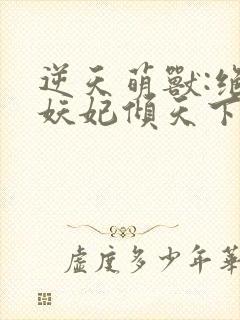 逆天萌獸:絕
妖妃傾天下
虛度多少年華